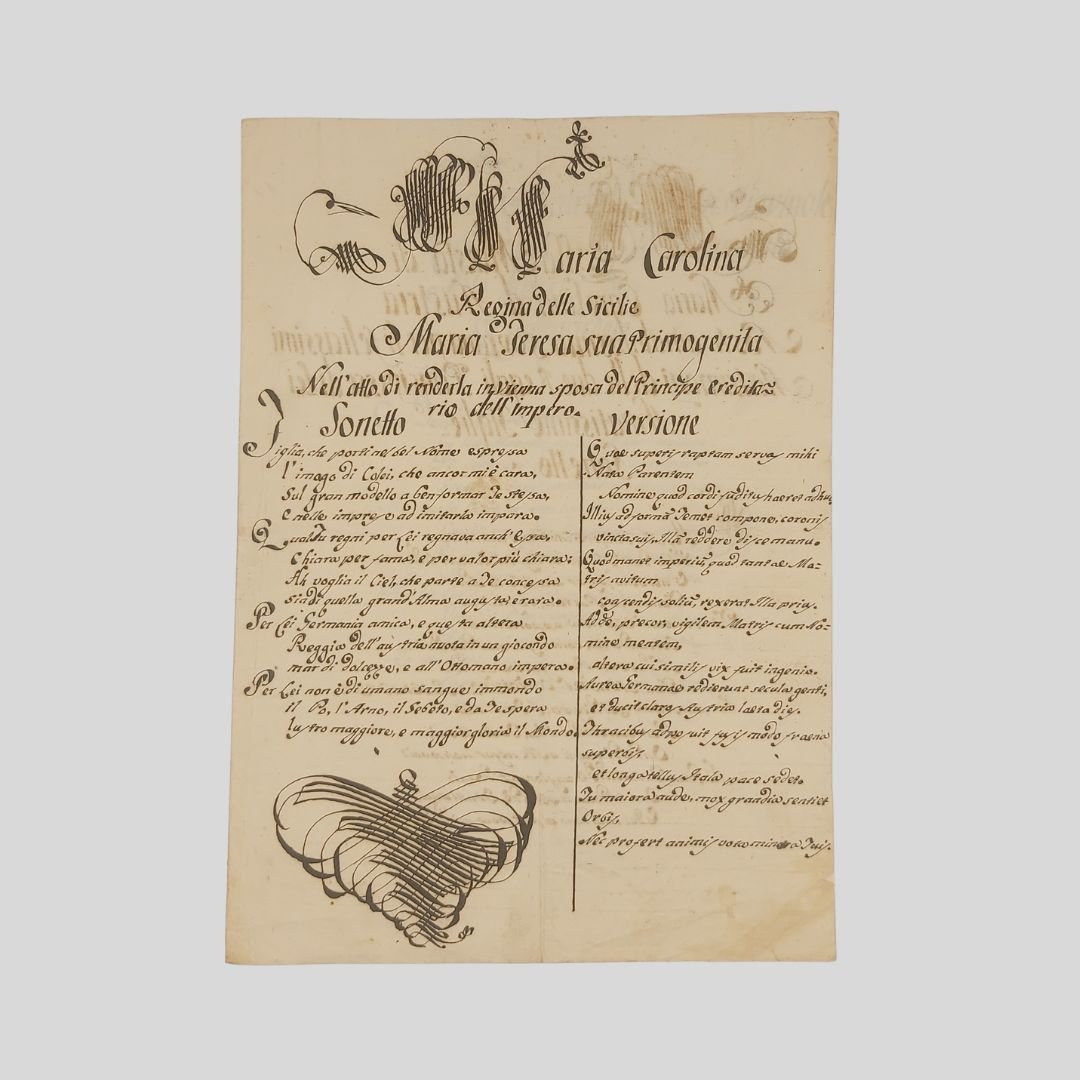 Maria Carolina
Regina delle Sicilie
Maria Teresa sua Primogenita
Nell'atto di renderla in Vienna sposa del Principe eredita=
rio dell'impero.
Sonetto
Figlia, che porti nel bel Nome espressa
l'imago di Colei, che ancor mi è cara,
Sul gran modello a ben formar Te stessa,
e nelle imprese ad imitarla impara.
Qual Tu regni per Lei regnava anch'Essa,
Chiara per fama, e per valor più chiara:
Ah voglia il Ciel, che parte a Te concessa
sia di quella grand'Alma augusta, e rara.
Per Lei Germania amica, e questa altera
Reggia dell'austria nuota in un giocondo
mar di dolcezze, e all'Ottomano impera.
Per Lei non è di umano sangue immondo
il Po, l'Arno, il Sebeto, e da Te spera
lustro maggiore, e maggior gloria il Mondo.
Versione
Quae superis raptam servas mihi
Nata Parentem
Nomine, quod cordi haeret
Illius ad formā Temet compone, coronis
vincta suis, Illā reddere disce manu.
Quod manet imperiū, quod tantae Ma=
tris avitum
conscendis soliū, rexerat Illa prius.
Adde, precor, vigilem Matris cum No=
mine mentem,
altera cui similis vix fuit ingenio.
Aurea Germanae redierunt secula genti,
et ducit claros Austria laeta dies.
Thracibus fraena
superbis,
et longa tellus Itala pace sedet.
Tu maiora aude, mox grandia sentiet
Orbis,
Nec profert animis vota minora Tuis.